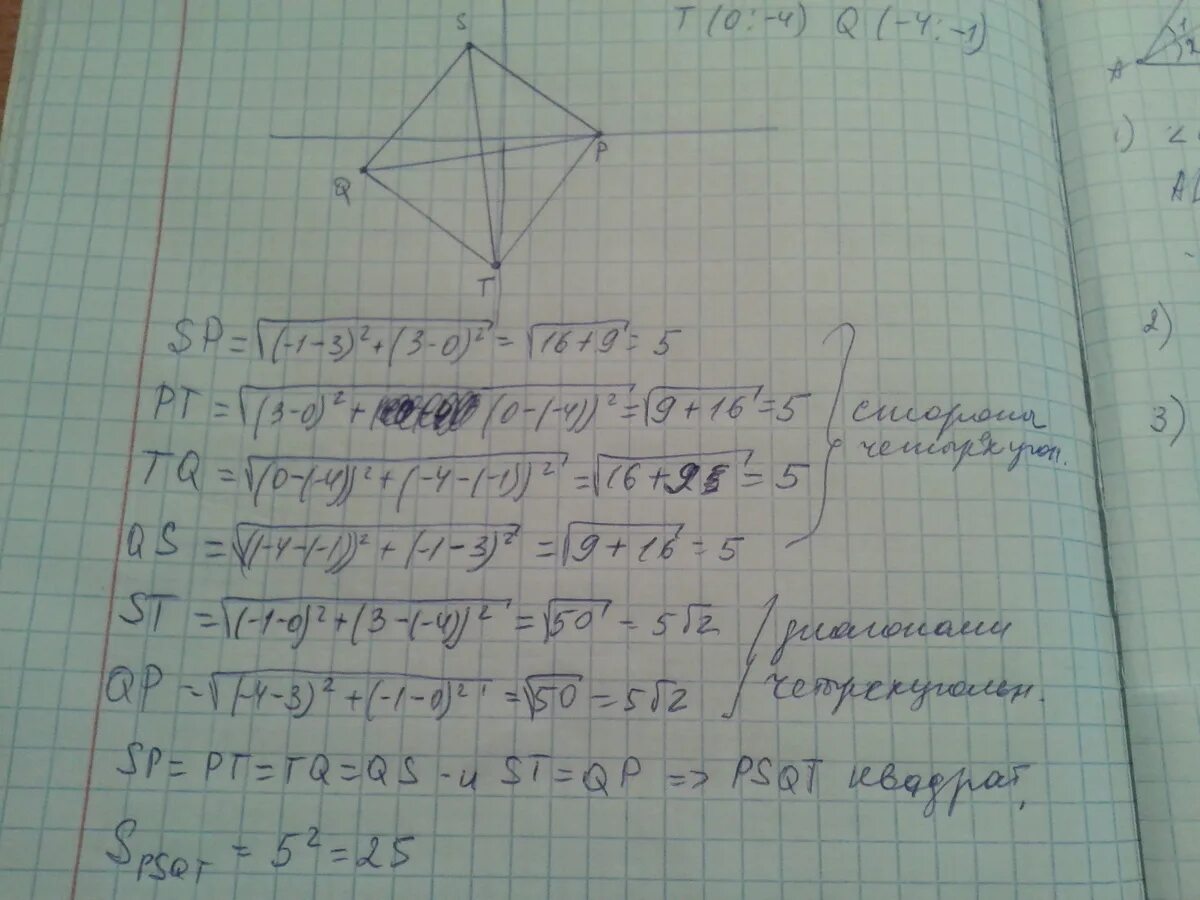 T (0;-4) Q (-4;-1)
S
P
Q
T
SP = √(-1-3)²+(3-0)² = √16+9 = 5
PT = √(3-0)²+(0-(-4))² = √9+16 = 5
TQ = √(0-(-4))²+(-4-(-1))² = √16+9 = 5
QS = √(-4-(-1))²+(-1-3)² = √9+16 = 5
стороны
четырехугол.
ST = √(-1-0)²+(3-(-4))² = √50 = 5√2
QP = √(-4-3)²+(-1-0)² = √50 = 5√2
диагонали
четырехугольн.
SP = PT = TQ = QS - и ST = QP => PSQT квадрат,
S PSQT = 5² = 25
A
1
2
1) ∠
2)
3)